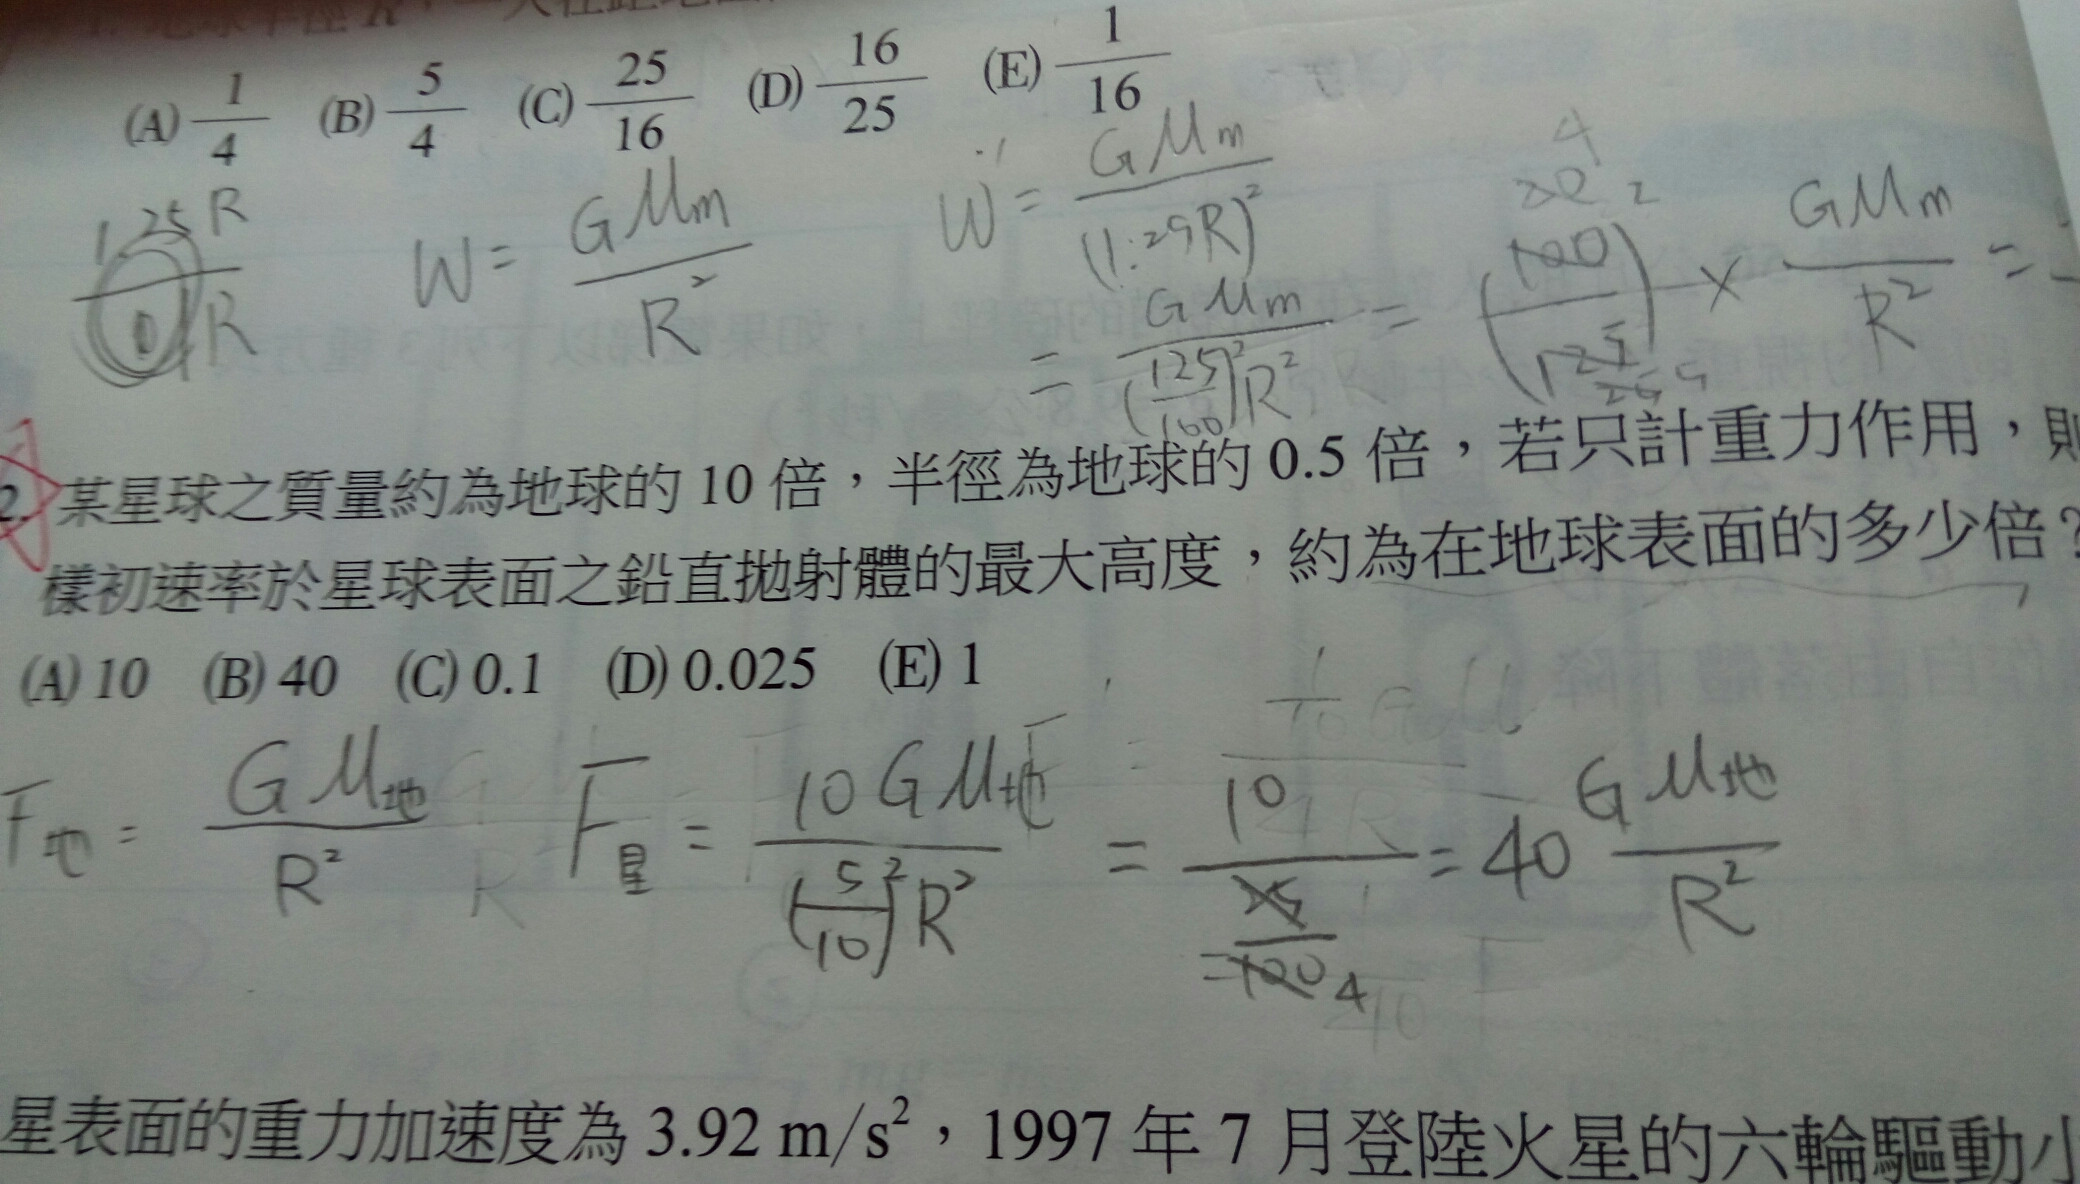 (A) 1/4 (B) 5/4 (C) 25/16 (D) 16/25 (E) 1/16
1.25R / R
W = GMm / R²
W' = GMm / (1.25R)²
= GMm / (125/100)²R² = (100/125)² × GMm / R² =
2. 某星球之質量約為地球的 10 倍，半徑為地球的 0.5 倍，若只計重力作用，則
樣初速率於星球表面之鉛直拋射體的最大高度，約為在地球表面的多少倍？
(A) 10 (B) 40 (C) 0.1 (D) 0.025 (E) 1
F地 = GM地 / R² F星 = 10GM地 / (5/10)²R² = 10 / 25/100 4 = 40 GM地 / R²
星表面的重力加速度為 3.92 m/s²，1997 年 7 月登陸火星的六輪驅動小